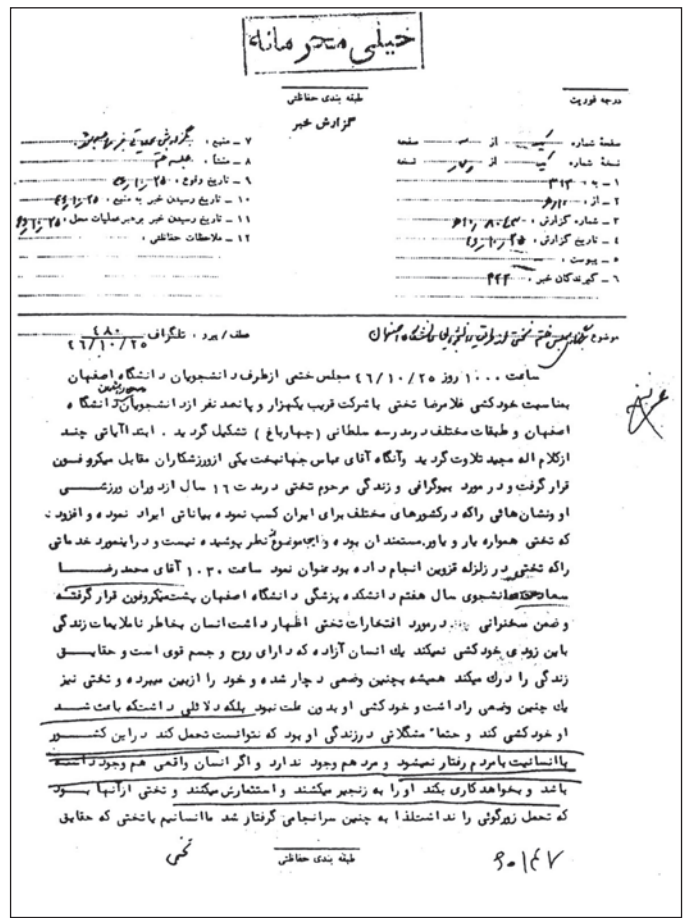 خیلی محرمانه
طبقه بندی حفاظتی
درجه فوریت
گزارش خبر
صفحه شماره یک از صفحه
نسخه شماره یک از نسخه
۱ ــ به ۰ ۳۱۲
۲ ــ از ۰
۳ ــ شماره گزارش ۰
۴ ــ تاریخ گزارش ۰
۵ ــ پیوست ۰
۶ ــ گیرندگان خبر ۰
۷ ــ منبع ۰
۸ ــ منشأ ۰
۹ ــ تاریخ وقوع ۰ ۴۶٫۱۰٫۲۵
۱۰ ــ تاریخ رسیدن خبر به منبع ۰ ۴۶٫۱۰٫۲۵
۱۱ ــ تاریخ رسیدن خبر برهبر عملیات محل ۰ ۴۶٫۱۰٫۲۵
۱۲ ــ ملاحظات حفاظتی ۰
موضوع مجلس ختم تختی از طرف دانشجویان دانشگاه اصفهان
عطف / پیرو ۰ تلگراف ۴۸۰
۴۶/۱۰/۲۵
ساعت ۱۰۰۰ روز ۴۶/۱۰/۲۵ مجلس ختمی ازطرف دانشجویان دانشگاه اصفهان
بمناسبت خودکشی غلامرضا تختی با شرکت قریب یکهزار و پانصد نفر ازدانشجویان دانشگاه
اصفهان و طبقات مختلف درمدرسه سلطانی (چهارباغ) تشکیل گردید . ابتدا آیاتی چند
ازکلام اله مجید تلاوت گردید وآنگاه آقای عباس جهانبخت یکی ازورزشکاران مقابل میکروفون
قرار گرفت و در مورد بیوگرافی و زندگی مرحوم تختی درمدت ۱۶ سال ازدوران ورزشی
او ونشان‌هائی راکه درکشورهای مختلف برای ایران کسب نموده بیاناتی ایراد نموده و افزود :
که تختی همواره یار و یاور مستمندان بوده و این موضوع از نظر پوشیده نیست و دراینمورد خدماتی
راکه تختی در زلزله قزوین انجام داده بود عنوان نمود ساعت ۱۰۳۰ آقای محمدرضا
دانشجوی سال هفتم دانشکده پزشگی دانشگاه اصفهان پشت میکروفون قرار گرفته
و ضمن سخنرانی درمورد افتخارات تختی اظهار داشت انسان بخاطر ناملایمات زندگی
باین زودی خودکشی نمیکند یك انسان آزاده که دارای روح و جسم قوی است و حقایق
زندگی را درك میکند همیشه بچنین وضعی دچار شده و خود را ازبین میبرد و تختی نیز
یك چنین وضعی راداشت و خودکشی او بدون علت نبود بلکه دلائلی داشتکه باعث شد
او خودکشی کند و حتماً مشگلاتی درزندگی او بود که نتوانست تحمل کند دراین کشور
باانسانیت بامردم رفتار نمیشود و مرد هم وجود ندارد و اگر انسان واقعی هم وجود داشته
باشد و بخواهد کاری بکند اورا به زنجیر میکشند و استثمارش میکنند و تختی ازآنها بود
که تحمل زورگوئی را نداشت لذا به چنین سرانجامی گرفتار شد ماانسانیم یاتختی که حقایق
طبقه بندی حفاظتی
تختی
۶۰۱۴۷